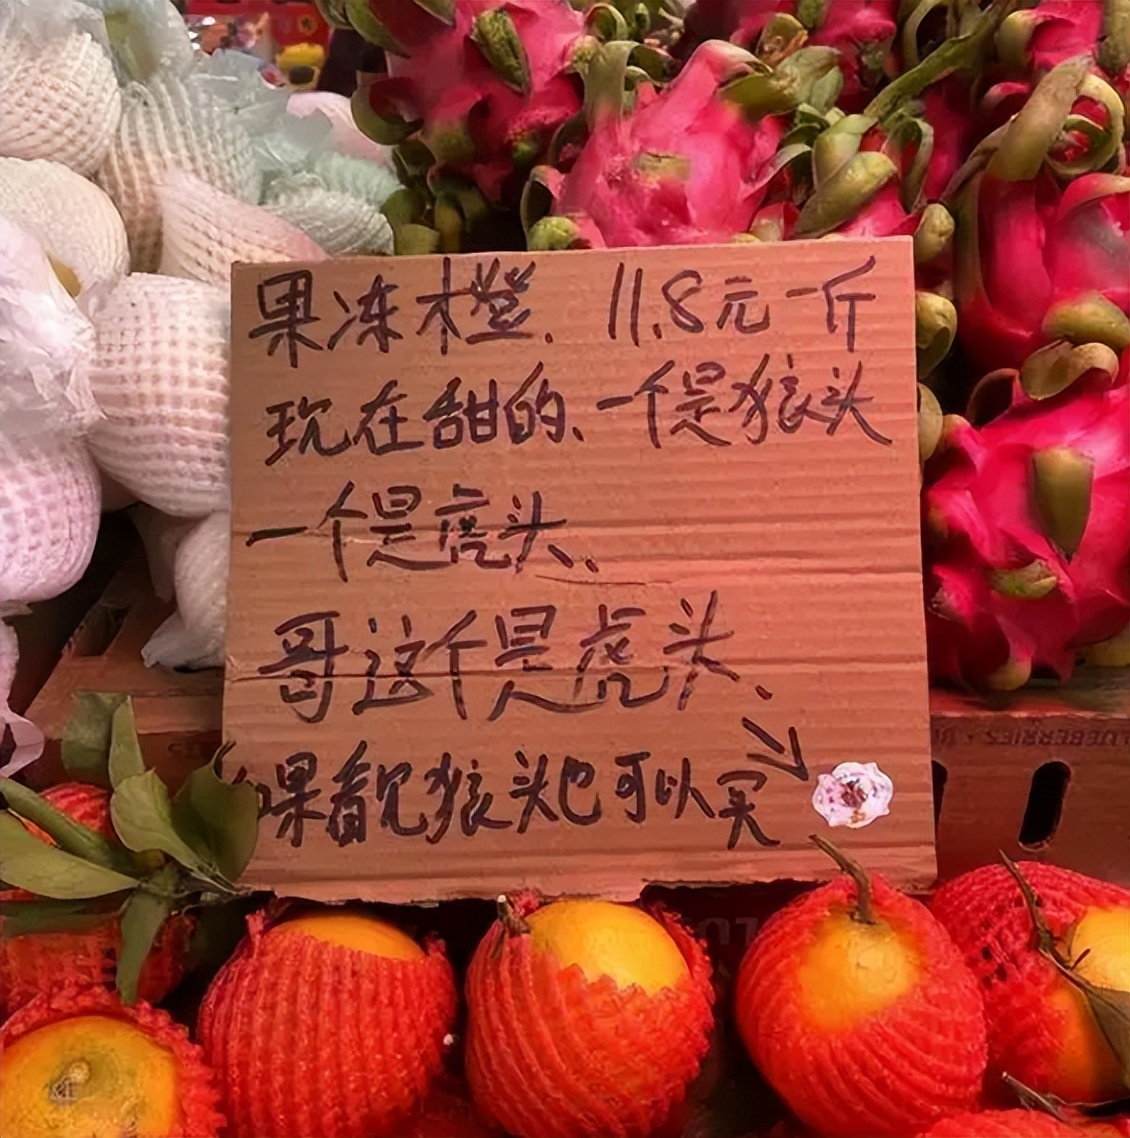 果冻橙. 11.8元一斤
现在甜的、一个是狼头
一个是虎头、
哥这个是虎头、
如果看见狼头也可以买
LUEBERRIES